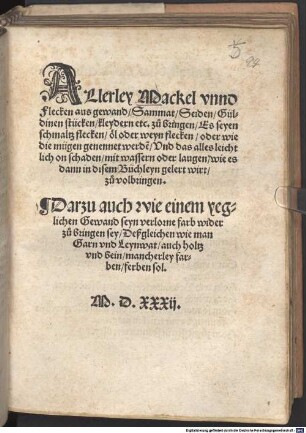 5
ALlerley Mackel vnnd
Flecken aus gewand/Sammat/Seiden/Gül-
dinen stücken/kleydern etc. zů bringen/Es seyen
schmaltz flecken/öl oder weyn flecken/oder wie
die mügen genennet werdē/Vnd das alles leicht
lich on schaden/mit wassern oder laugen/wie es
dann in disem Büchleyn gelert wirt/
zů volbringen.
¶Darzu auch wie einem yeg-
lichen Gewand seyn verlorne farb wider
zů bringen sey/Deßgleichen wie man
Garn vnd Leynwat/auch holtz
vnd bein/mancherley far-
ben/ferben sol.
M. D. XXXij.